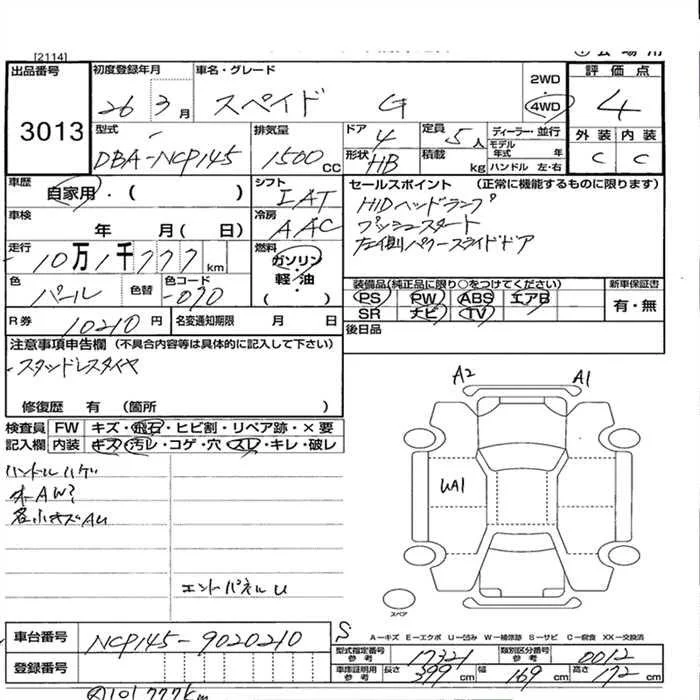 [2114]
出品番号 3013
初度登録年月 26 3月
車名・グレード スペイド G
2WD
4WD
評価点 4
外装 内装
C C
型式 DBA-NCP145
排気量 1500 CC
ドア 4
定員 5人
ディーラー・並行
モデル年式 年
形状 HB
積載 kg
ハンドル 左・右
車歴 自家用・( )
シフト IAT
車検 年 月( 日)
冷房 AAC
セールスポイント (正常に機能するものに限ります)
HIDヘッドランプ
プッシュスタート
左側パワースライドドア
走行 10万1千777km
燃料 ガソリン・軽・油 ( )
色 パール
色替
色コード -070
装備品(純正品に限り○をつけてください)
PS PW ABS エアB
SR ナビ TV
新車保証書
有・無
R券 10210円
名変通知期限 月 日
後日品
注意事項申告欄 (不具合内容等は具体的に記入して下さい)
スタッドレスタイヤ
修復歴 有 (箇所 )
検査員 FW キズ・飛石・ヒビ割・リペア跡・×要
記入欄 内装 キズ・汚レ・コゲ・穴・スレ・キレ・破レ
ハンドルハゲ
各小キズAU
エンドパネルU
A2 A1
UA1
スペア
S
A-キズ E-エクボ U-凹み W-補修跡 S-サビ C-腐食 XX-交換済
車台番号 NCP145-9020210
登録番号
型式指定番号 参考 17321
類別区分番号 参考 0012
車庫証明用 参考 長さ 399cm 幅 169cm 高さ 172cm
101,777km